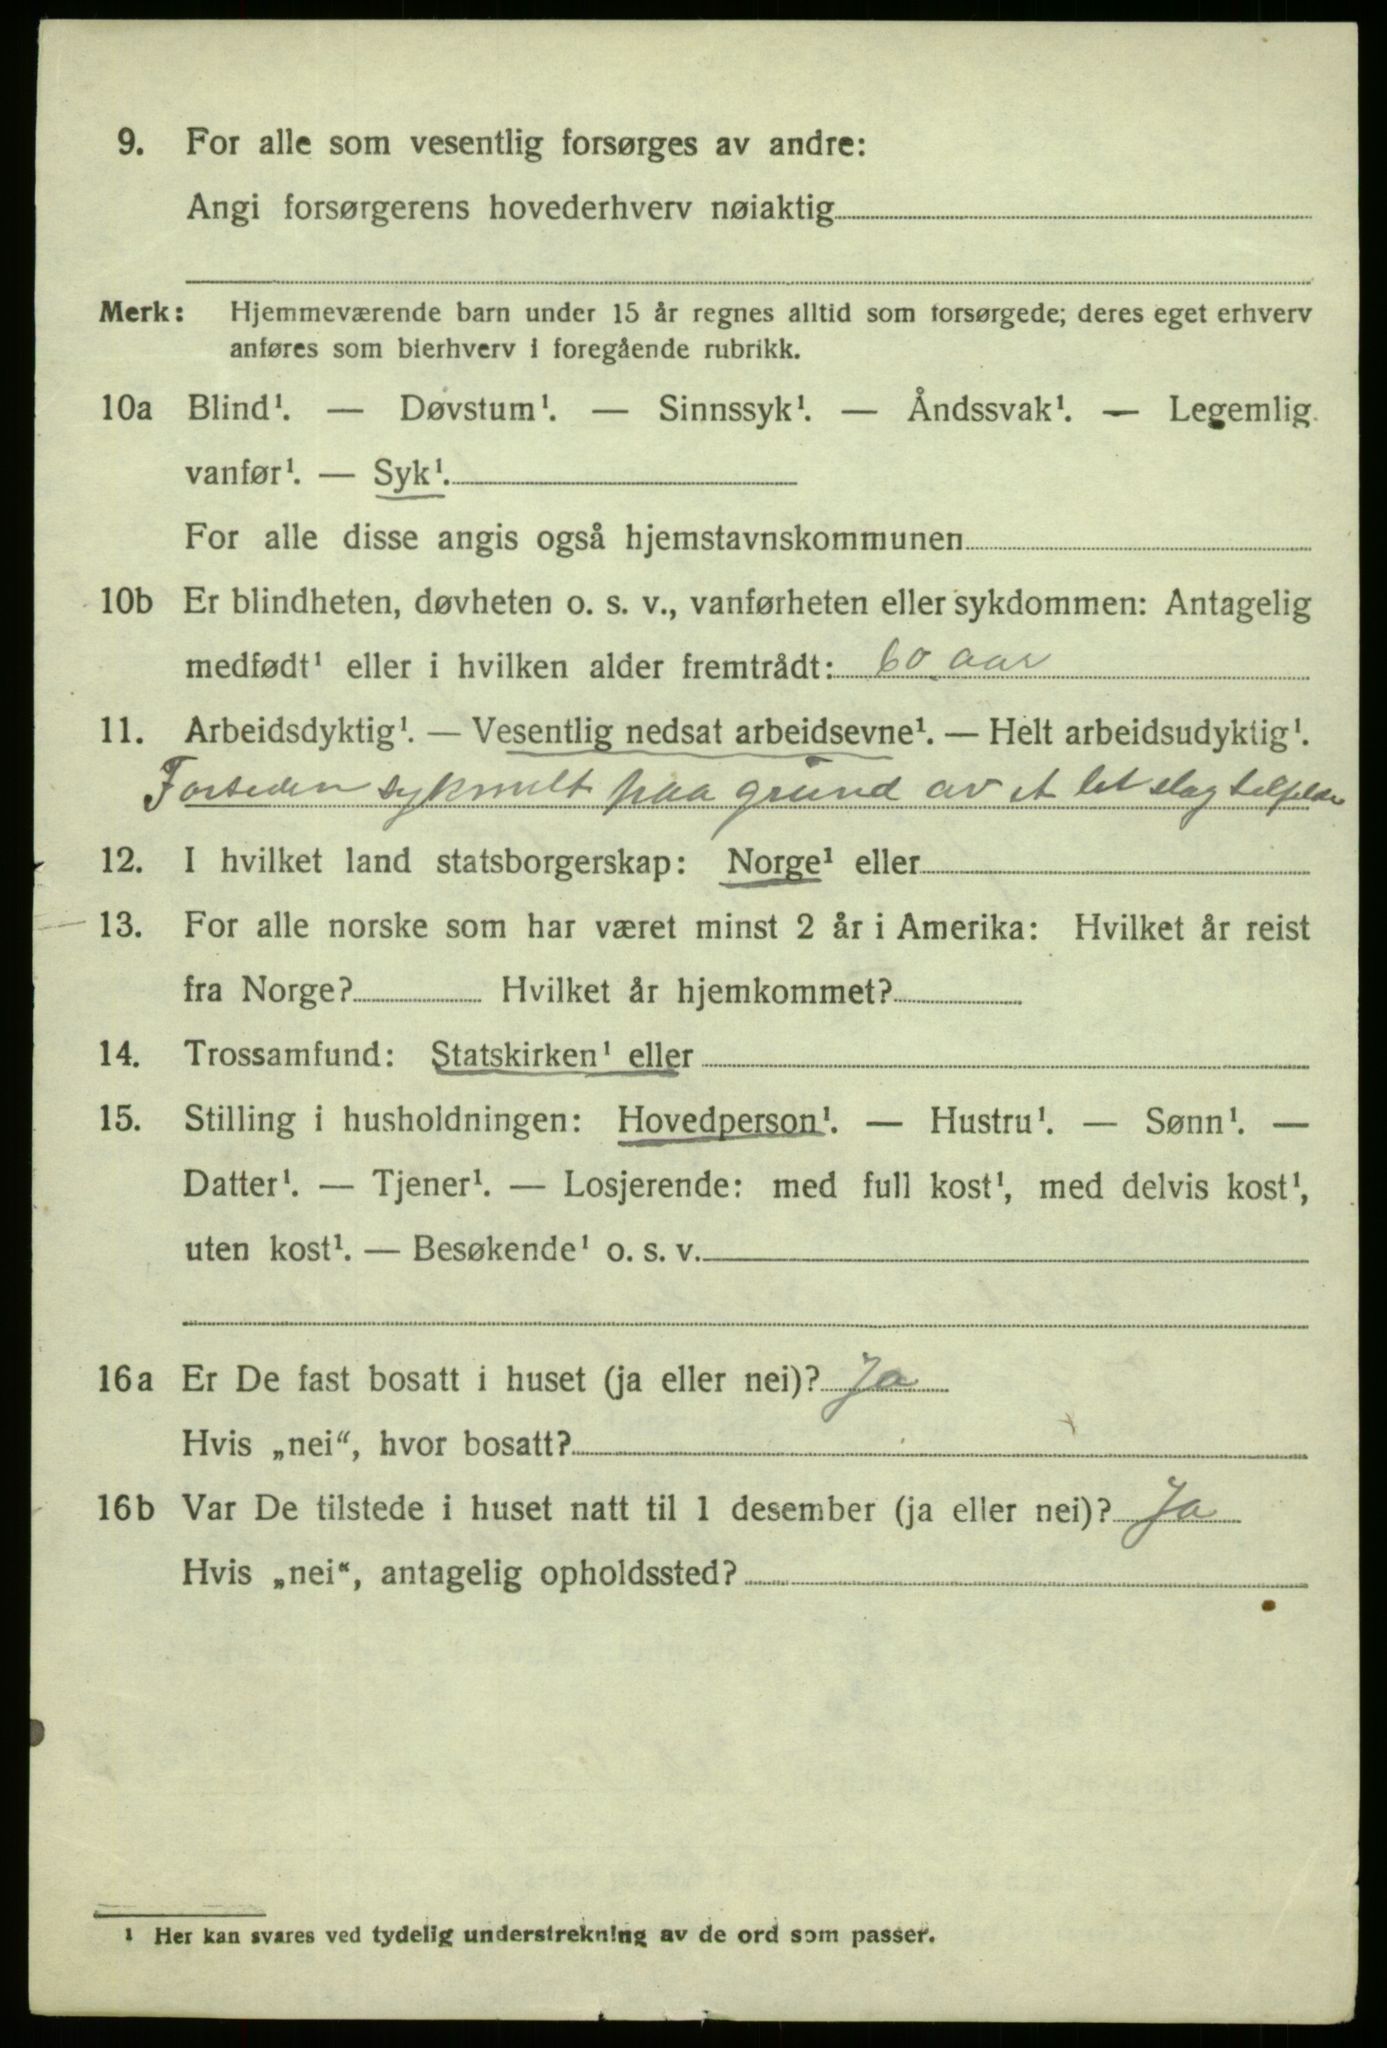 9. For alle som vesentlig forsørges av andre:
Angi forsørgerens hovederhverv nøiaktig
Merk: Hjemmeværende barn under 15 år regnes alltid som forsørgede; deres eget erhverv
anføres som bierhverv i foregående rubrikk.
10a Blind¹. — Døvstum¹. — Sinnssyk¹. — Åndssvak¹. — Legemlig
vanfør¹. — Syk¹.
For alle disse angis også hjemstavnskommunen
10b Er blindheten, døvheten o. s. v., vanførheten eller sykdommen: Antagelig
medfødt¹ eller i hvilken alder fremtrådt: 60 aar
11. Arbeidsdyktig¹. — Vesentlig nedsat arbeidsevne¹. — Helt arbeidsudyktig¹.
paa grund av et let slagtilfelde
12. I hvilket land statsborgerskap: Norge¹ eller
13. For alle norske som har været minst 2 år i Amerika: Hvilket år reist
fra Norge? Hvilket år hjemkommet?
14. Trossamfund: Statskirken¹ eller
15. Stilling i husholdningen: Hovedperson¹. — Hustru¹. — Sønn¹. —
Datter¹. — Tjener¹. — Losjerende: med full kost¹, med delvis kost¹,
uten kost¹. — Besøkende¹ o. s. v.
16a Er De fast bosatt i huset (ja eller nei)? Ja
Hvis „nei“, hvor bosatt?
16b Var De tilstede i huset natt til 1 desember (ja eller nei)? Ja
Hvis „nei“, antagelig opholdssted?
¹ Her kan svares ved tydelig understrekning av de ord som passer.